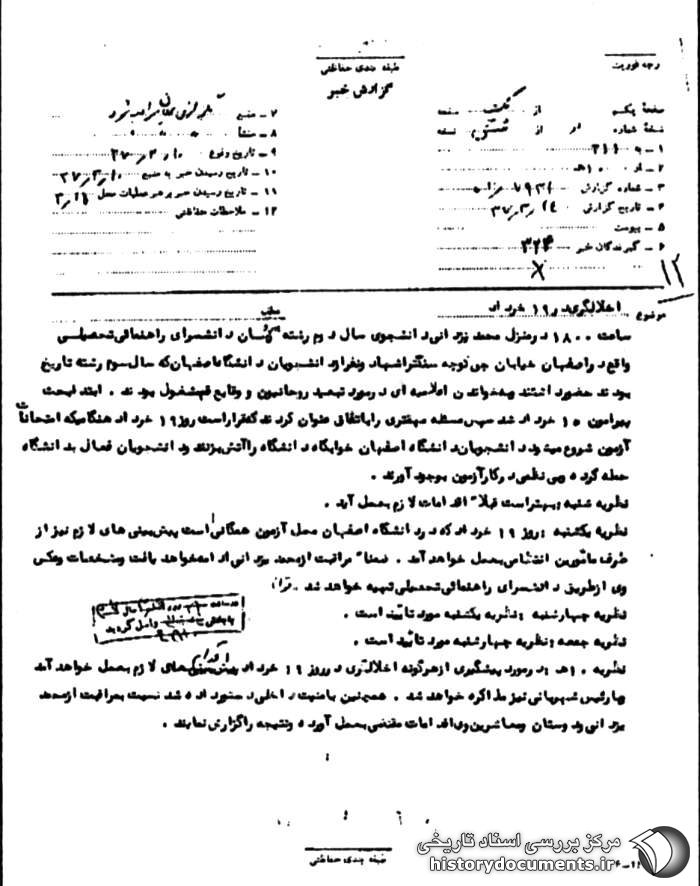 طبقه بندی حفاظتی
گزارش خبر
درجه فوریت
صفحه یکم از صفحه
نسخه شماره از نسخه
۱ ـ به ۳۱۱
۲ ـ از ۱۰هـ
۳ ـ شماره گزارش
۴ ـ تاریخ گزارش ۳۷/۳/۱۴
۵ ـ پیوست
۶ ـ گیرندگان خبر ۳۲۴
۷ ـ منبع
۸ ـ منشأ
۹ ـ تاریخ وقوع ۳۷/۳/۱۰
۱۰ ـ تاریخ رسیدن خبر به منبع ۳۷/۳/۱۰
۱۱ ـ تاریخ رسیدن خبر برهبر عملیات محل
۱۲ ـ ملاحظات حفاظتی
۱۲
موضوع اخلالگری در ۱۹ خرداد
ساعت ۱۸۰۰ در منزل محمد یزدانی دانشجوی سال دوم رشته دانشسرای راهنمائی تحصیلی
واقع در اصفهان خیابان جی توجه سنگتراشها دو نفر از دانشجویان دانشگاه اصفهان که سال سوم رشته تاریخ
بودند حضور داشتند و بخواندن اعلامیه ای در مورد تبعید روحانیون و وقایع قم مشغول بودند . ابتدا بحث
پیرامون ۱۵ خرداد شد سپس مسئله مهمتری را با اتفاق عنوان کردند که قرار است روز ۱۹ خرداد هنگامیکه امتحانات
آزمون شروع میشود دانشجویان دانشگاه اصفهان خوابگاه دانشگاه را آتش بزنند و دانشجویان فعال به دانشگاه
حمله کرده و بی نظمی در کار آزمون بوجود آورند .
نظریه شنبه : بهتر است قبلاً اقدامات لازم بعمل آید .
نظریه یکشنبه : روز ۱۹ خرداد که در دانشگاه اصفهان محل آزمون همگانی است پیش بینی های لازم نیز از
طرف مأمورین انتظامی بعمل خواهد آمد . ضمناً مراقبت از محمد یزدانی ادامه خواهد یافت و مشخصات و عکس
وی از طریق دانشسرای راهنمائی تحصیلی تهیه خواهد شد .
نظریه چهارشنبه : نظریه یکشنبه مورد تأئید است .
نظریه جمعه : نظریه چهارشنبه مورد تأئید است .
نظریه ۱۰هـ : در مورد پیشگیری از هرگونه اخلالگری در روز ۱۹ خرداد پیش بینی های لازم بعمل خواهد آمد
و با رئیس شهربانی نیز مذاکره خواهد شد . همچنین بامنیت داخلی دستور داده شد نسبت بمراقبت از محمد
یزدانی و دوستان و معاشرین وی اقدامات مقتضی بعمل آورده و نتیجه را گزارش نمایند .
طبقه بندی حفاظتی
مرکز بررسی اسناد تاریخی
historydocuments.ir